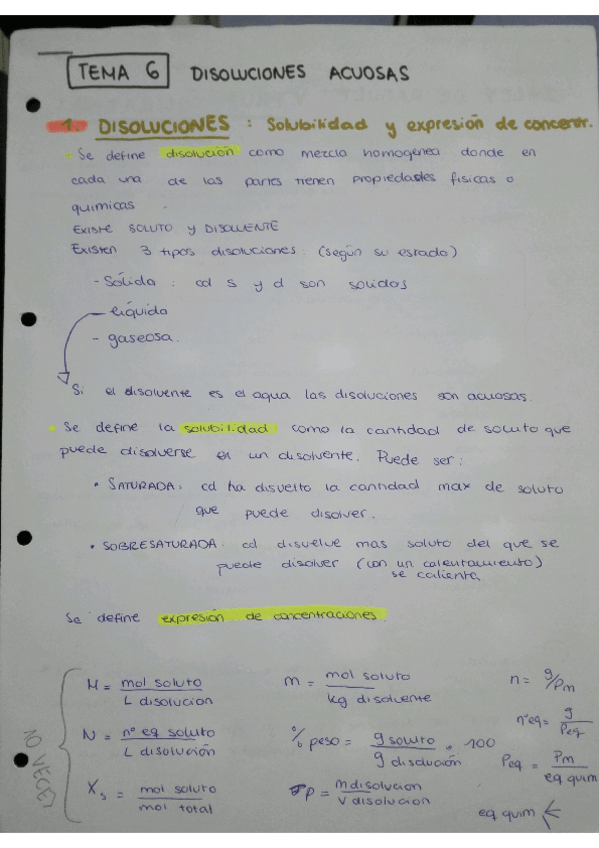 TEMA 6 DISOLUCIONES ACUOSAS
1. DISOLUCIONES : Solubilidad y expresión de concentr.
- Se define disolución como mezcla homogénea donde en
cada una de las partes tienen propiedades fisicas o
quimicas
EXISTE SOLUTO y DISOLVENTE
Existen 3 tipos disoluciones: (según su estado)
- Sólida : cd s y d son solidos
- líquida
- gaseosa.
Si el disolvente es el agua las disoluciones son acuosas.
Se define la solubilidad como la cantidad de soluto que
puede disolverse en un disolvente. Puede ser:
• SATURADA: cd ha disuelto la cantidad max de soluto
que puede disolver.
• SOBRESATURADA: cd disuelve mas soluto del que se
puede disolver (con un calentamiento)
se calienta
Se define expresión de concentraciones
M = mol soluto / L disolucion
m = mol soluto / kg disolvente
n = g/Pm
N = nº eq soluto / L disolución
% peso = g soluto / g disolución . 100
nºeq = g / Peq
Peq = Pm / eq quim
Xs = mol soluto / mol total
p = m disolucion / V disolucion
eq quim
10 VECES